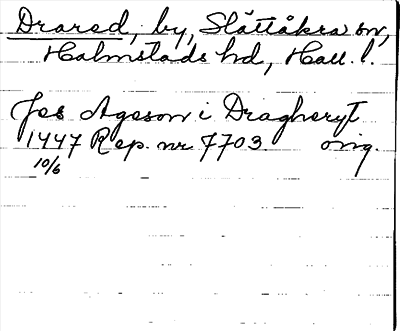 Drared, by, Slättåkra sn,
Halmstads hd, Hall. l.
Jes Ageson i Draghæryt
1447 Rep. nr 7703 orig.
10/6